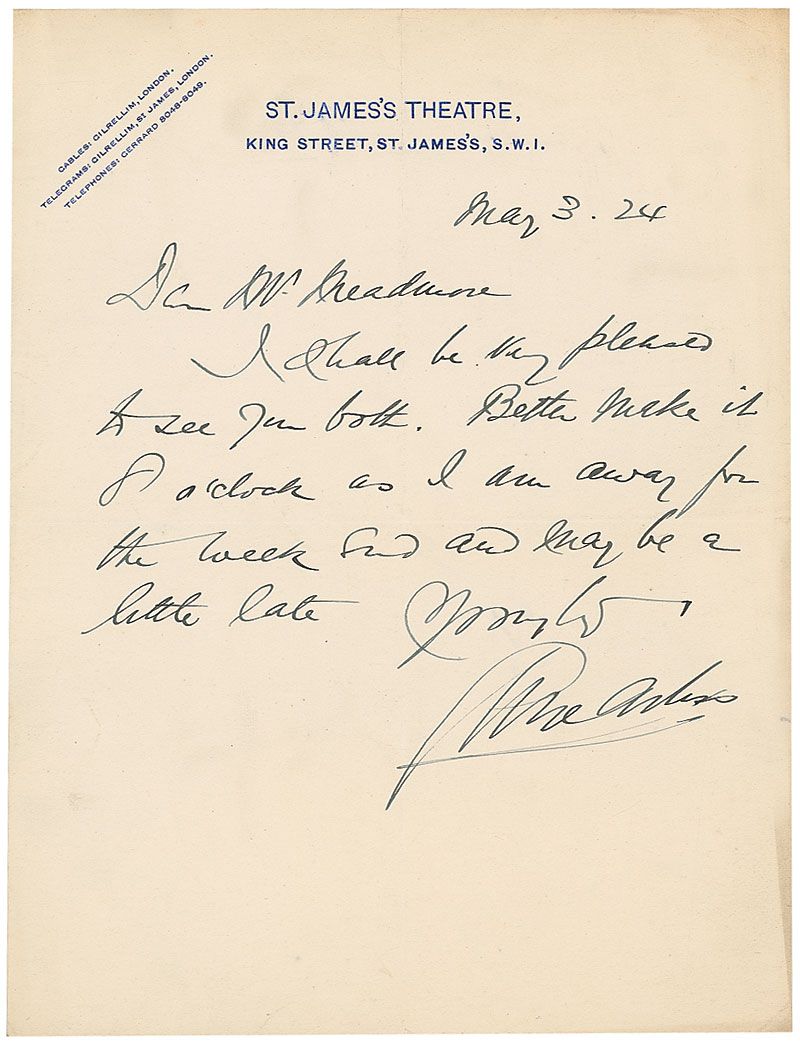 CABLES: GILRELLIM, LONDON.
TELEGRAMS: GILRELLIM, ST JAMES, LONDON.
TELEPHONES: GERRARD 8048-8049.
ST. JAMES'S THEATRE,
KING STREET, ST. JAMES'S, S.W.1.
May 3. 24
Dear Mr Meadmore
I shall be very pleased
to see you both. Better make it
8 o'clock as I am away for
the week end and may be a
little late
George Arliss